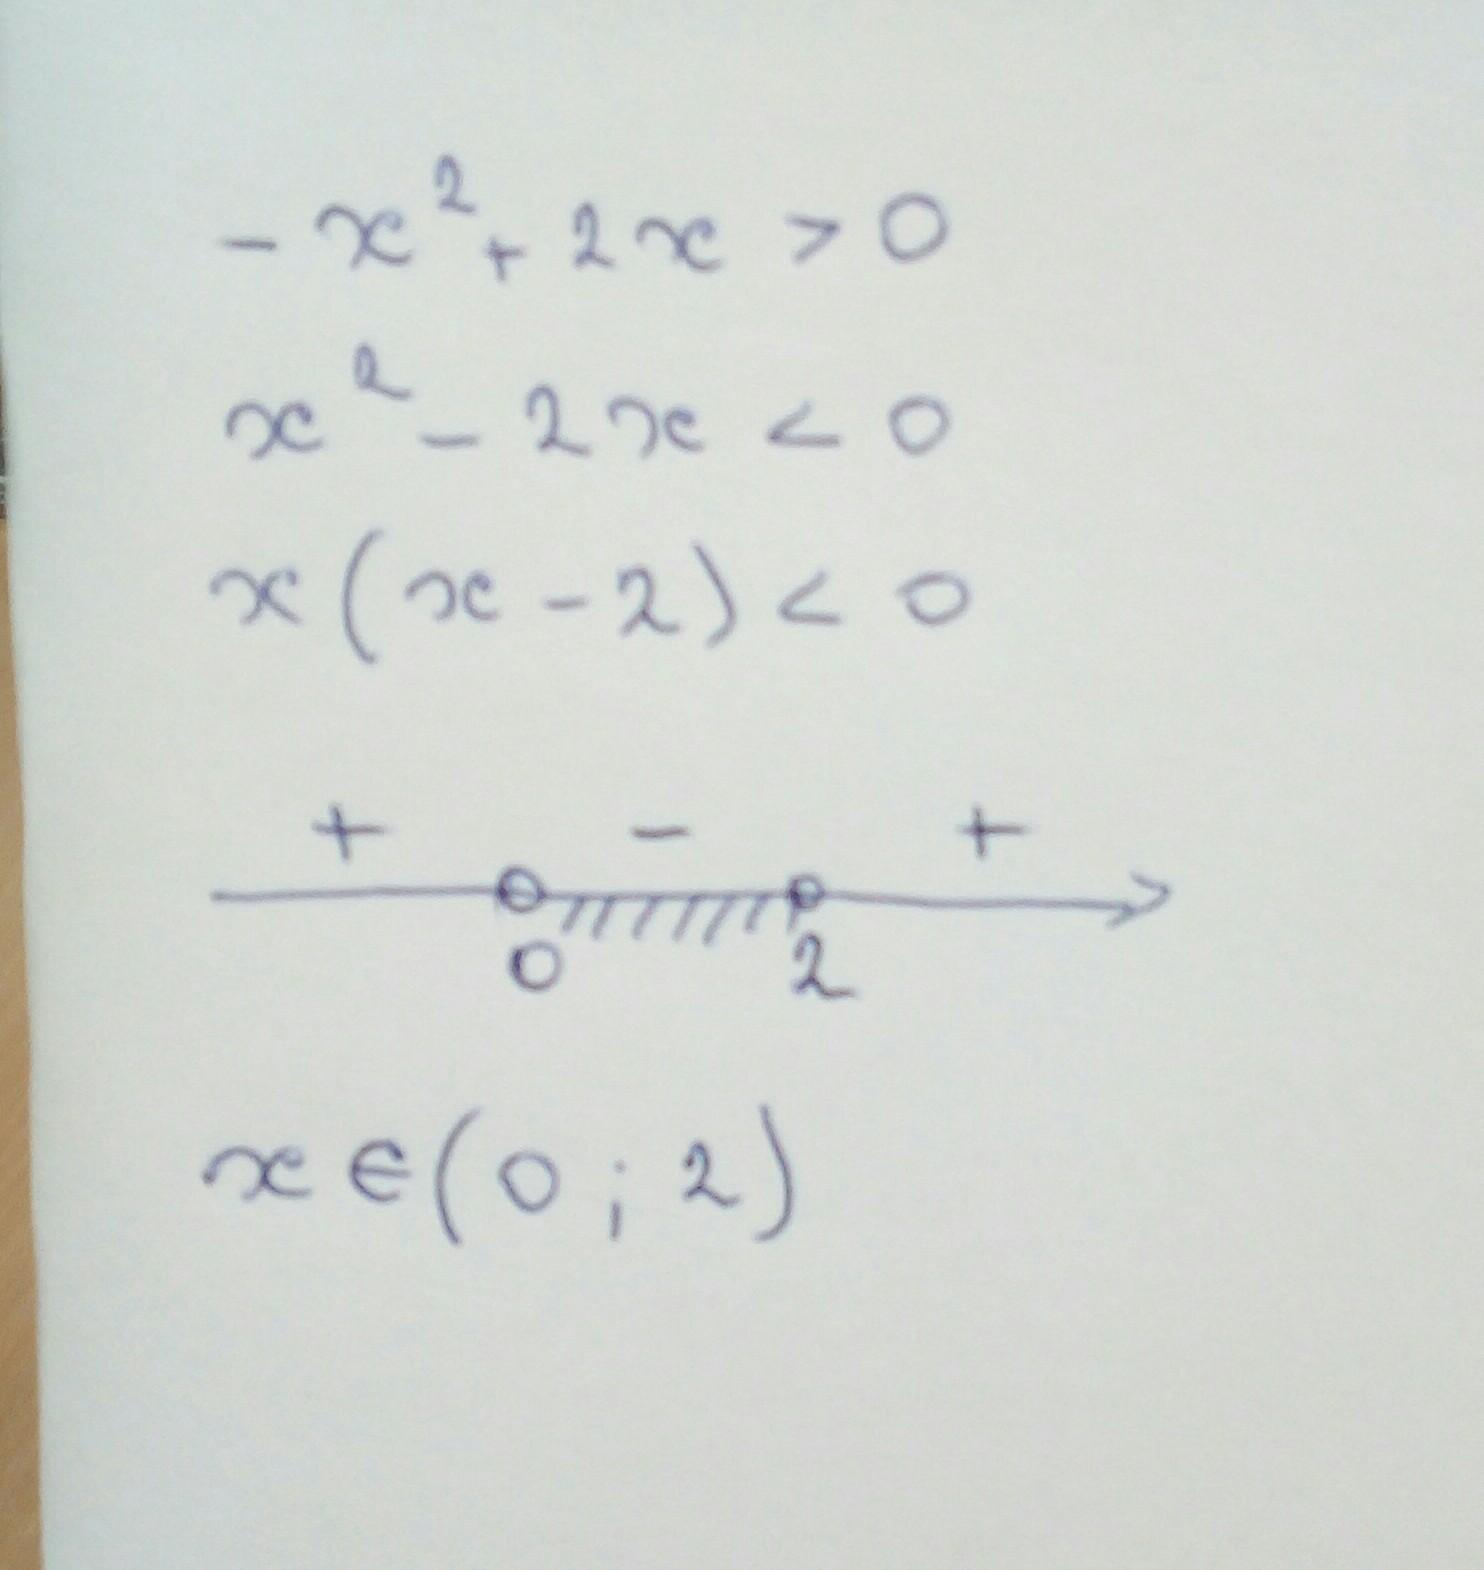 -x²+2x>0
x²-2x<0
x(x-2)<0
+ - +
0 2
x∈(0;2)